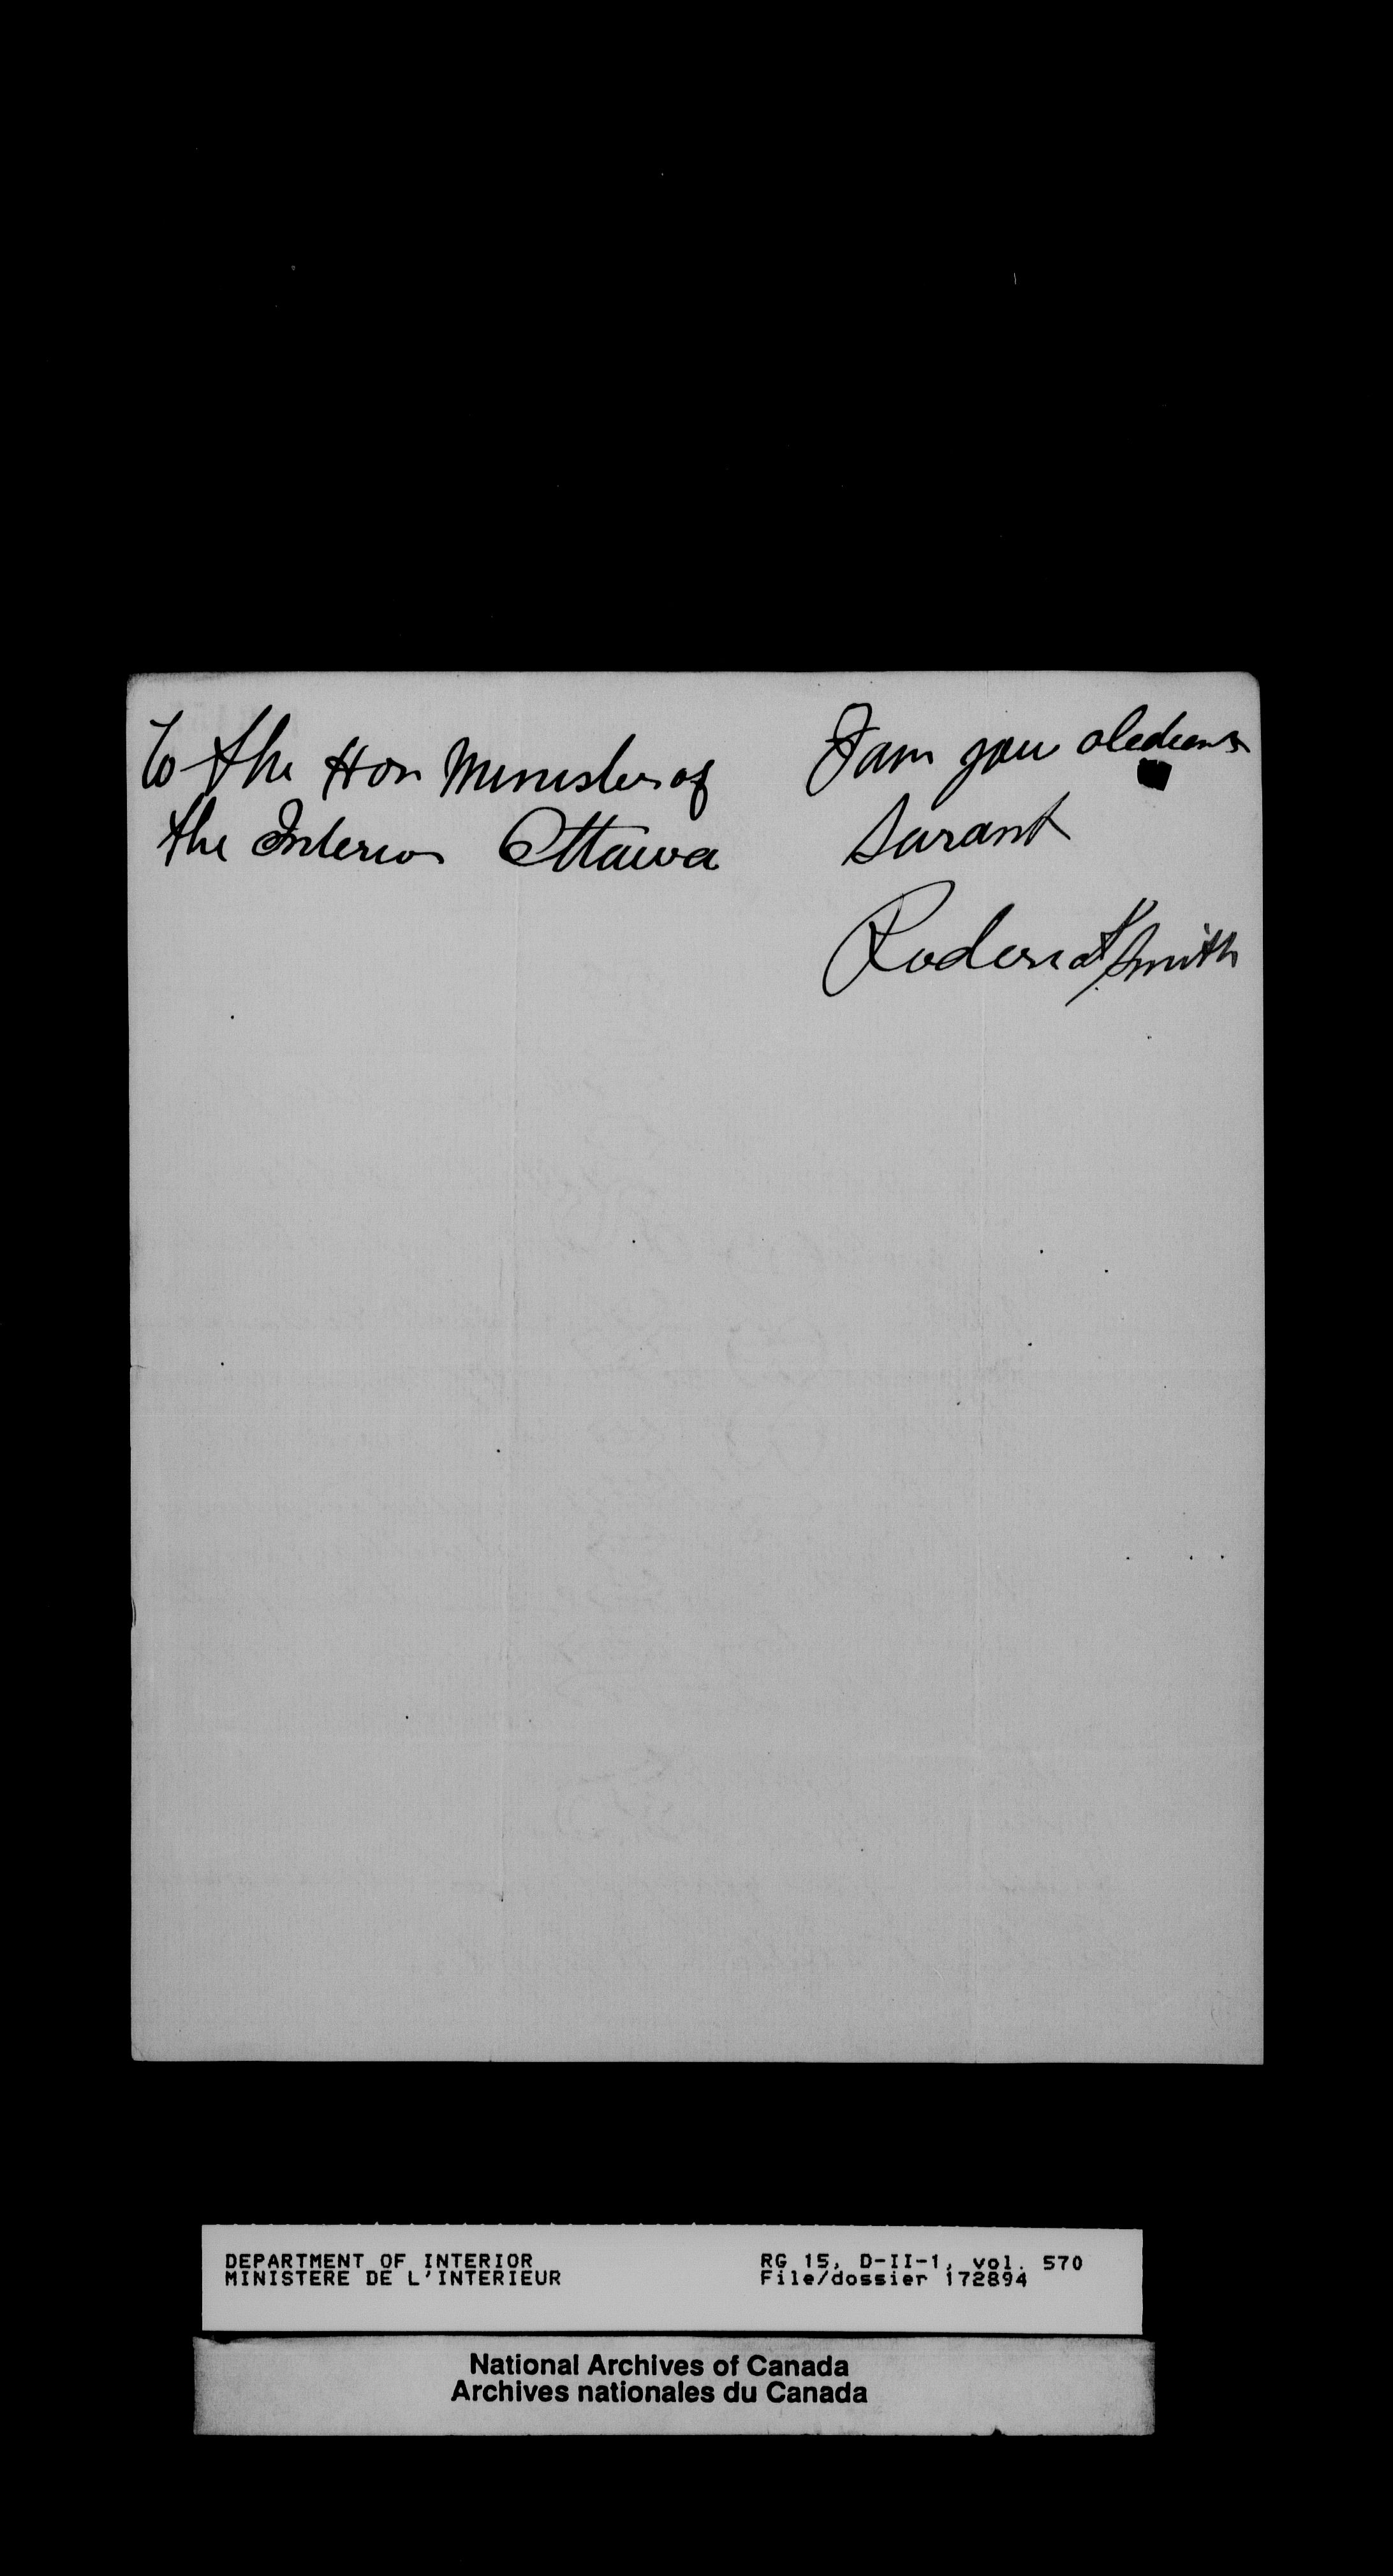 To the Hon Minister of
the Interior Ottawa
I am your obedient
Sarant
Roderick Smith
DEPARTMENT OF INTERIOR
MINISTERE DE L'INTERIEUR
RG 15, D-II-1, vol. 570
File/dossier 172894
National Archives of Canada
Archives nationales du Canada